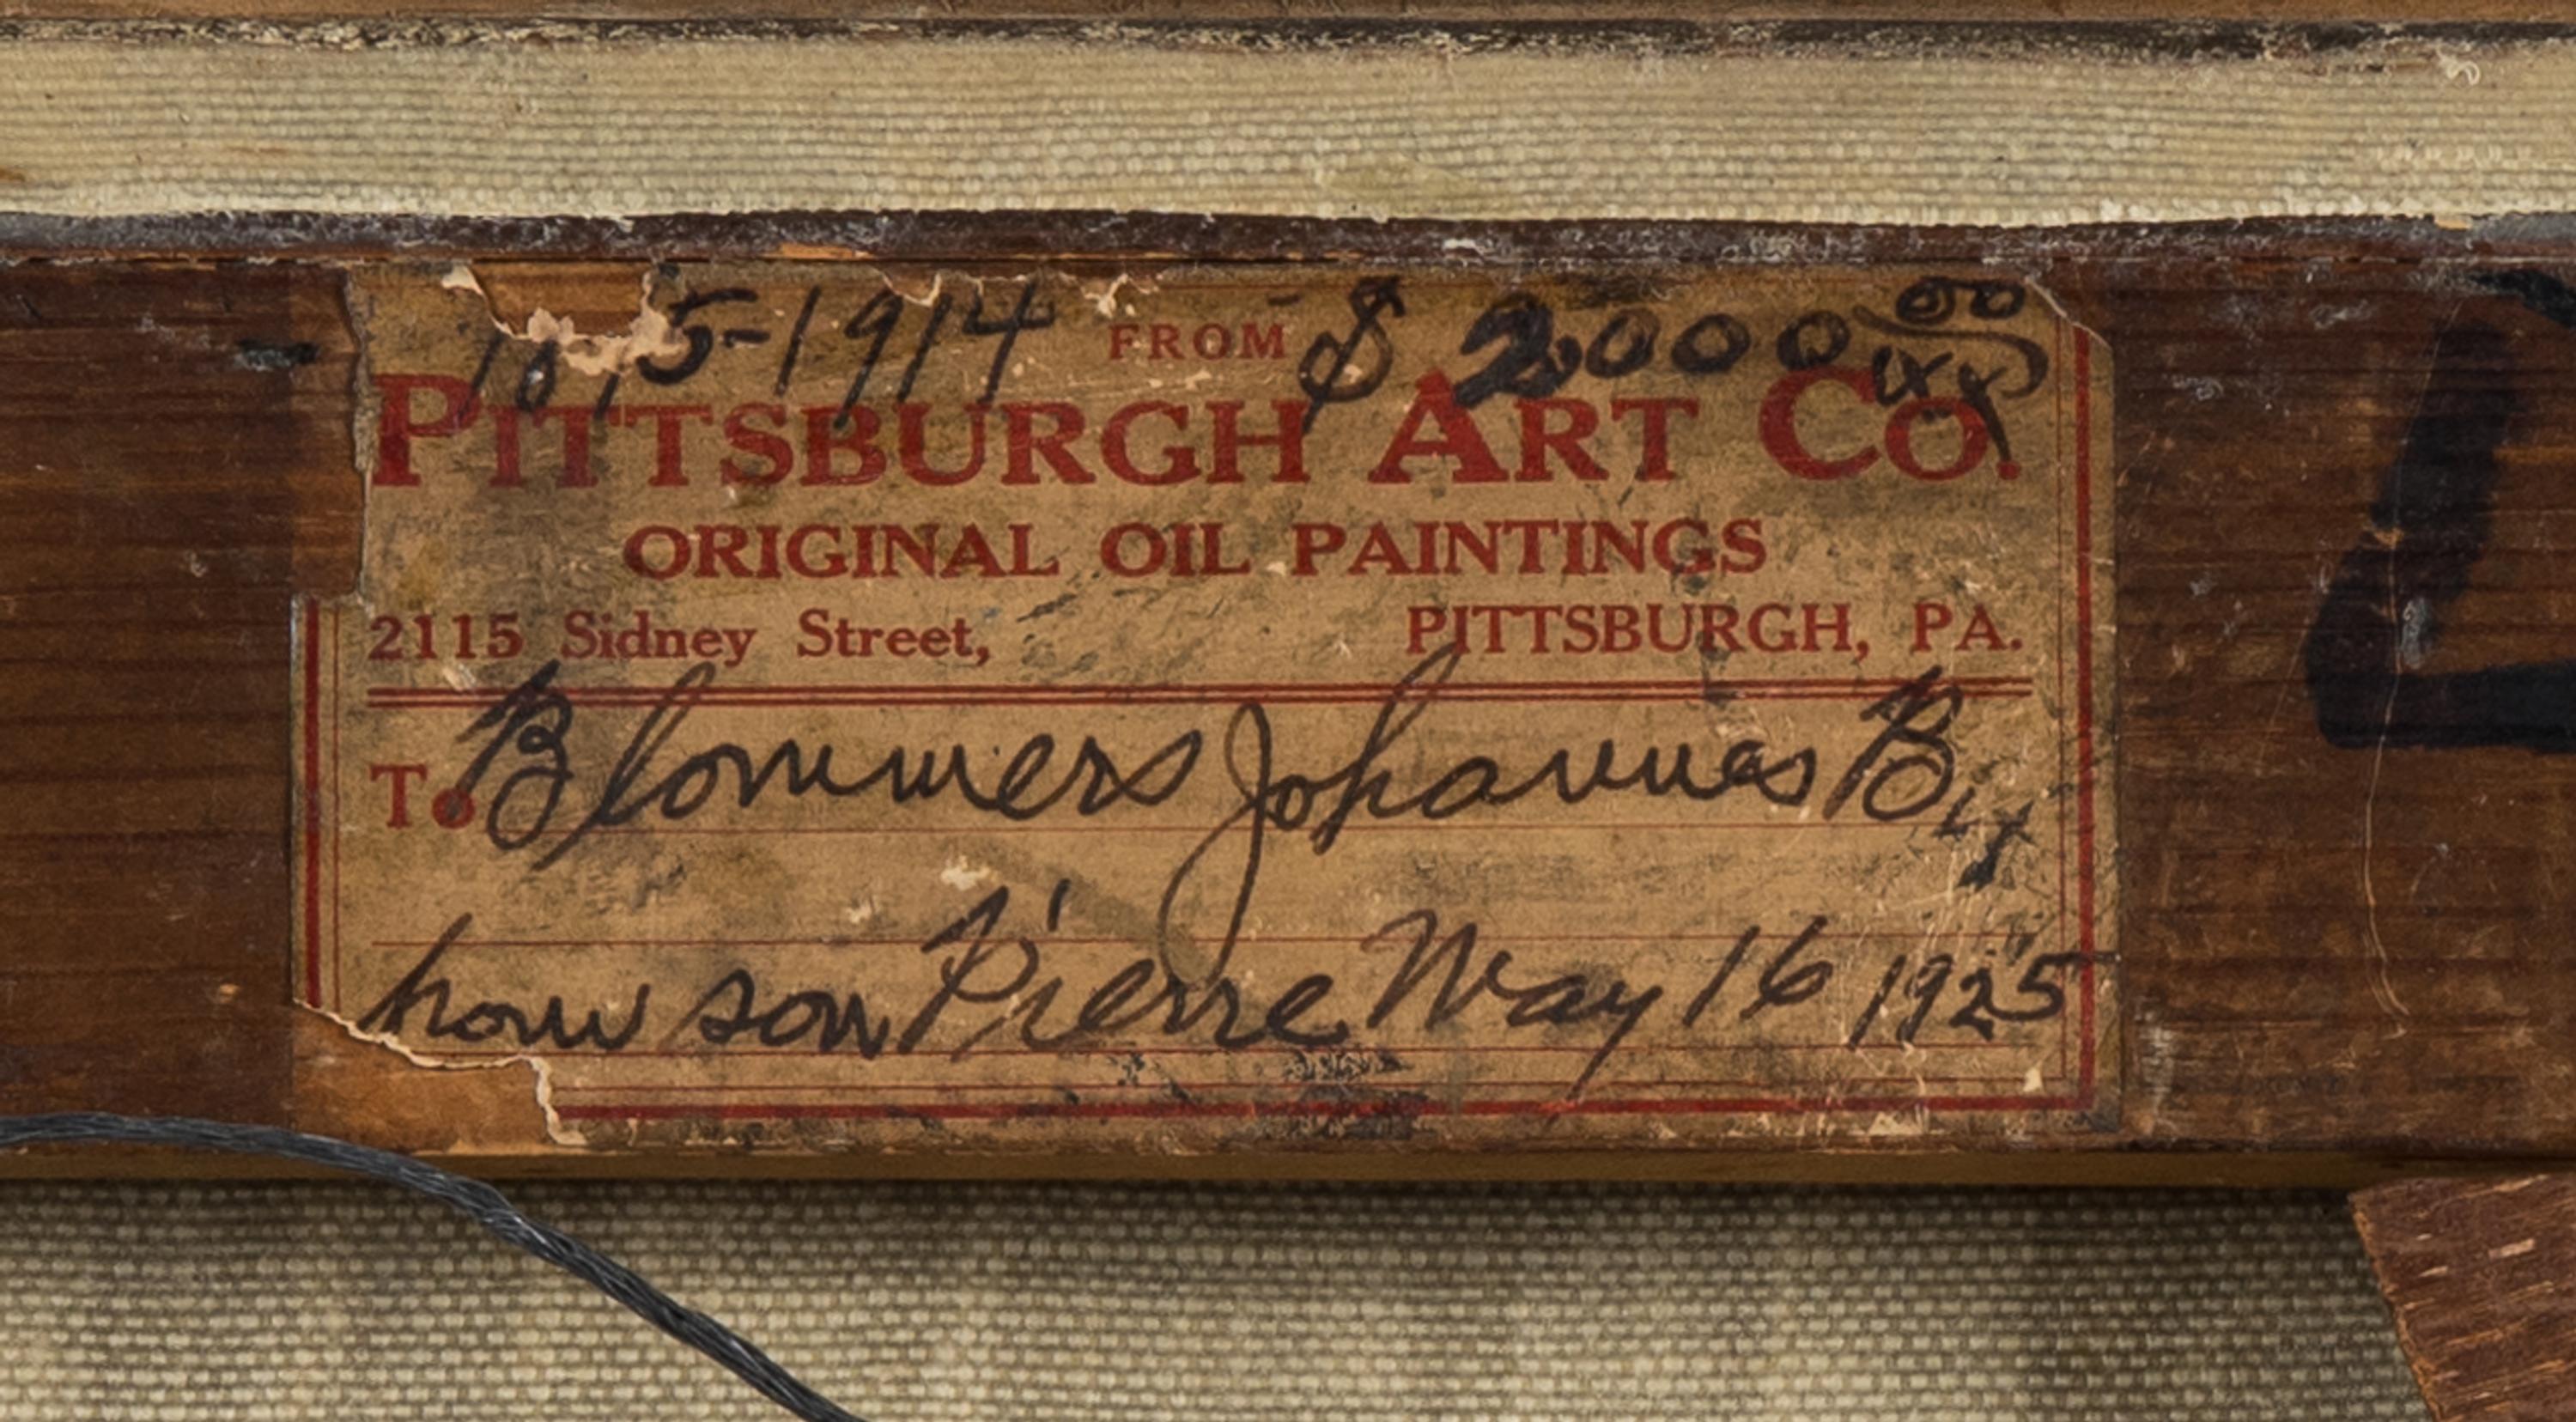 5-1914 FROM $ 2000 00
PITTSBURGH ART CO.
ORIGINAL OIL PAINTINGS
2115 Sidney Street, PITTSBURGH, PA.
To Blommers Johannes B
son Pierre May 16 1925